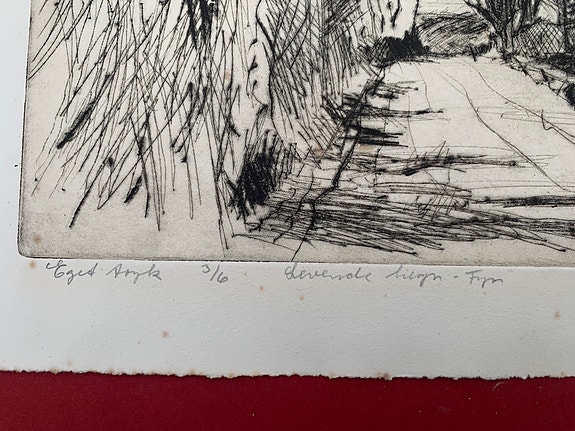 Eget tryk 3/6 Levende hegn - Fyn